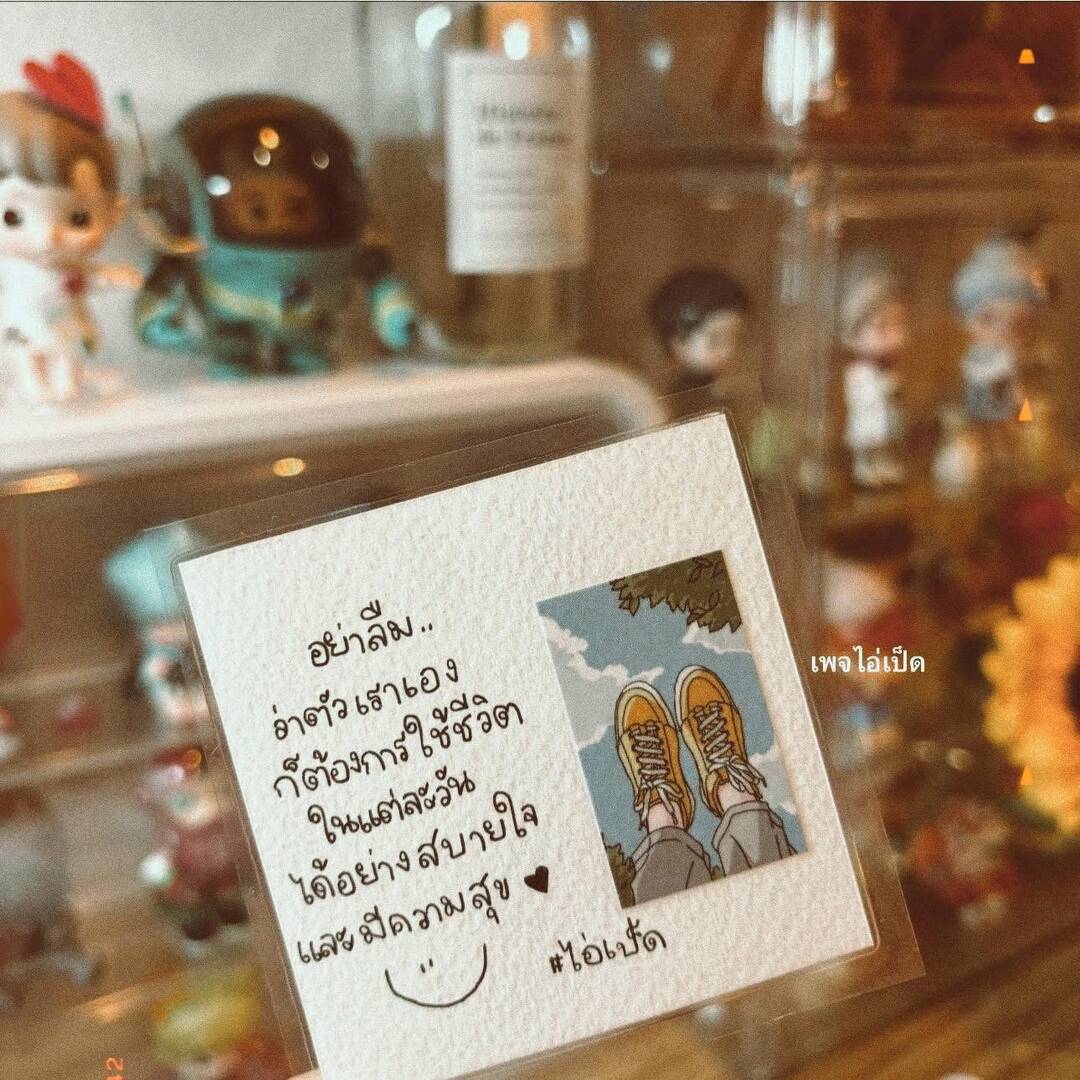 อย่าลืม..
ว่าตัวเราเอง
ก็ต้องการใช้ชีวิต
ในแต่ละวัน
ได้อย่างสบายใจ
และมีความสุข ♥
#ไอ่เป็ด
เพจไอ่เป็ด